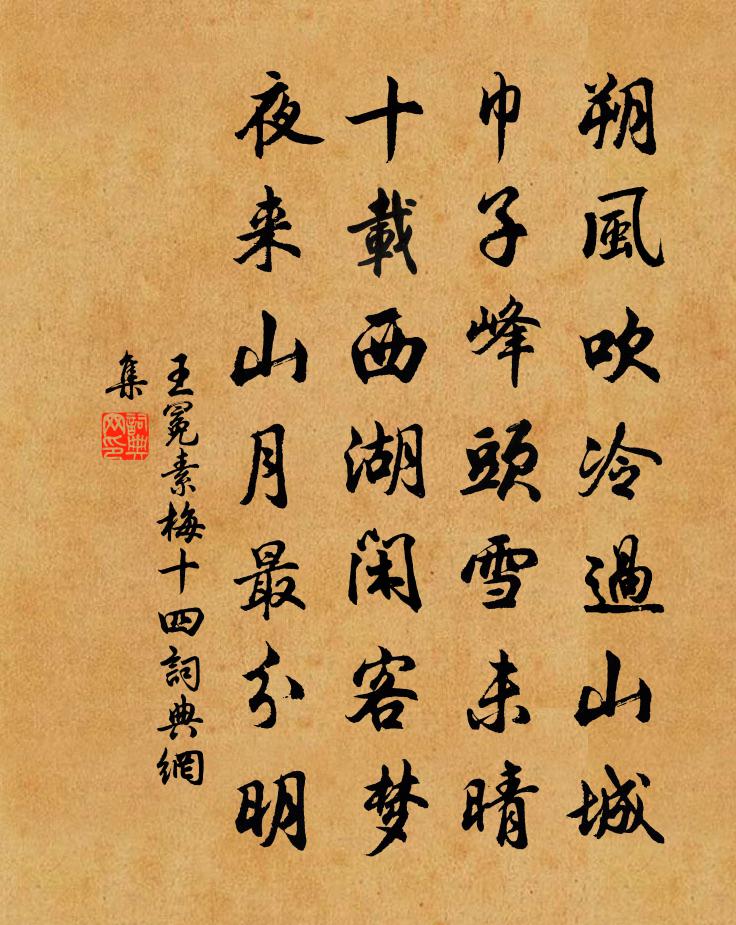 朔風吹冷過山城
巾子峰頭雪未晴
十載西湖閑客梦
夜来山月最分明
王冕素梅十四詞典網
集
詞典
网印